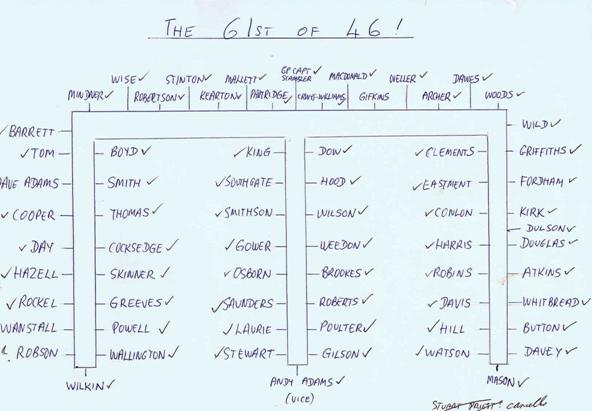 THE 61ST OF 46!
WISE✓ STINTON✓ MALLETT✓ GP CAPT✓ SCAMBLER MACDONALD✓ WELLER✓ DAWES✓
MINDNER✓ ROBERTSON✓ KEARTON✓ PARTRIDGE✓ CRAVEN-WILLIAMS✓ GIFKINS ARCHER✓ WOODS✓
✓BARRETT WILD✓
✓TOM BOYD✓ ✓KING DOW✓ ✓CLEMENTS GRIFFITHS✓
DAVE ADAMS SMITH✓ ✓SOUTHGATE HOOD✓ ✓EASTMENT FORDHAM✓
✓COOPER THOMAS✓ ✓SMITHSON WILSON✓ ✓CONLON KIRK✓
DULSON✓
✓DAY COCKSEDGE✓ ✓GOWER WEEDON✓ ✓HARRIS DOUGLAS✓
✓HAZELL SKINNER✓ ✓OSBORN BROOKES✓ ✓ROBINS ATKINS✓
✓ROCKEL GREEVES✓ ✓SAUNDERS ROBERTS✓ ✓DAVIS WHITBREAD✓
WANSTALL POWELL✓ ✓LAURIE POULTER✓ ✓HILL BUTTON✓
ROBSON WALLINGTON✓ ✓STEWART GILSON✓ ✓WATSON DAVEY✓
WILKIN✓ ANDY ADAMS✓ MASON✓
(VICE)
STUART